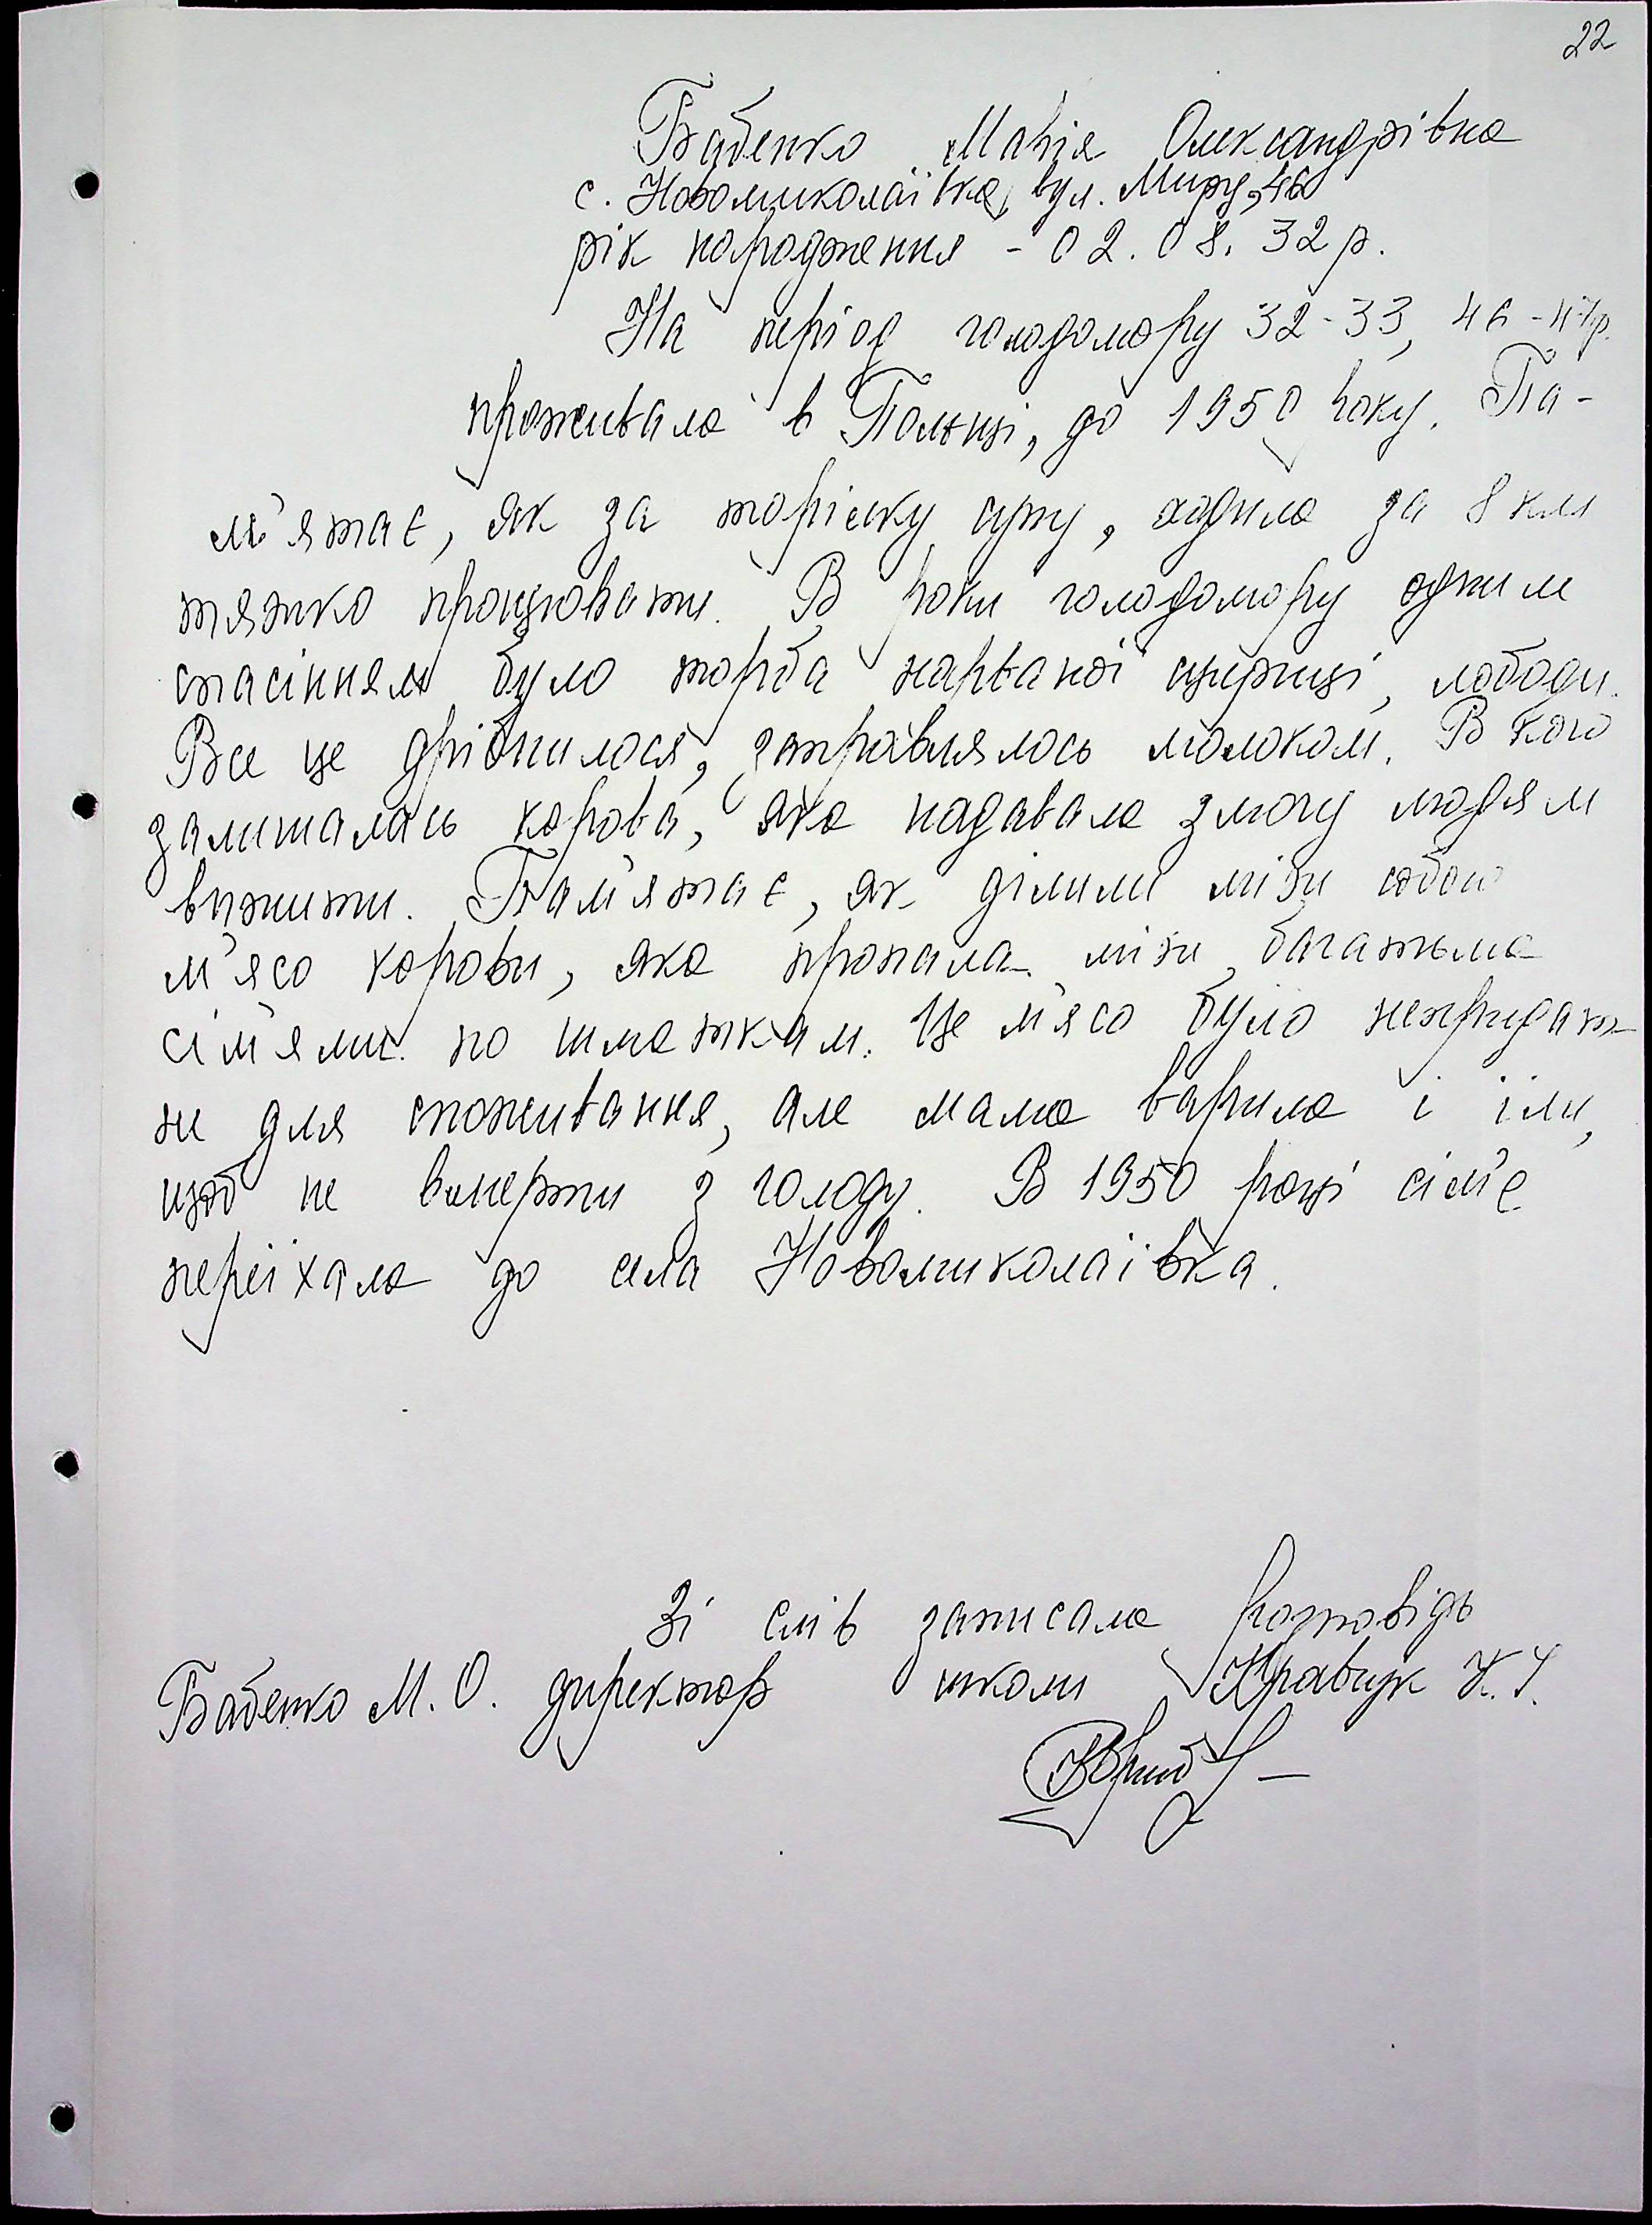 22
Бабенко Марія Олександрівна
с. Новомиколаївка, вул. Миру, 46
рік народження - 02.08.32 р.
На період голодомору 32-33, 46-47р.
проживала в Польщі, до 1950 року. Па-
м'ятає, як за торілку супу, ходила за 8 км
тяжко працювати. В роки голодомору одним
спасінням було торба нарваної щириці, лободи.
Все це дрібнилося, заправлялось молоком. В кого
залишалась корова, яка надавала змогу людям
вижити. Пам'ятає, як ділили між собою
м'ясо корови, яка пропала між багатьма
сім'ями по шматкам. Це м'ясо було непридат-
не для споживання, але мама варила і їли,
щоб не вмерти з голоду. В 1950 році сім'я
переїхала до села Новомиколаївка.
Зі слів записала розповідь
Бабенко М.О. директор школи Кравчук